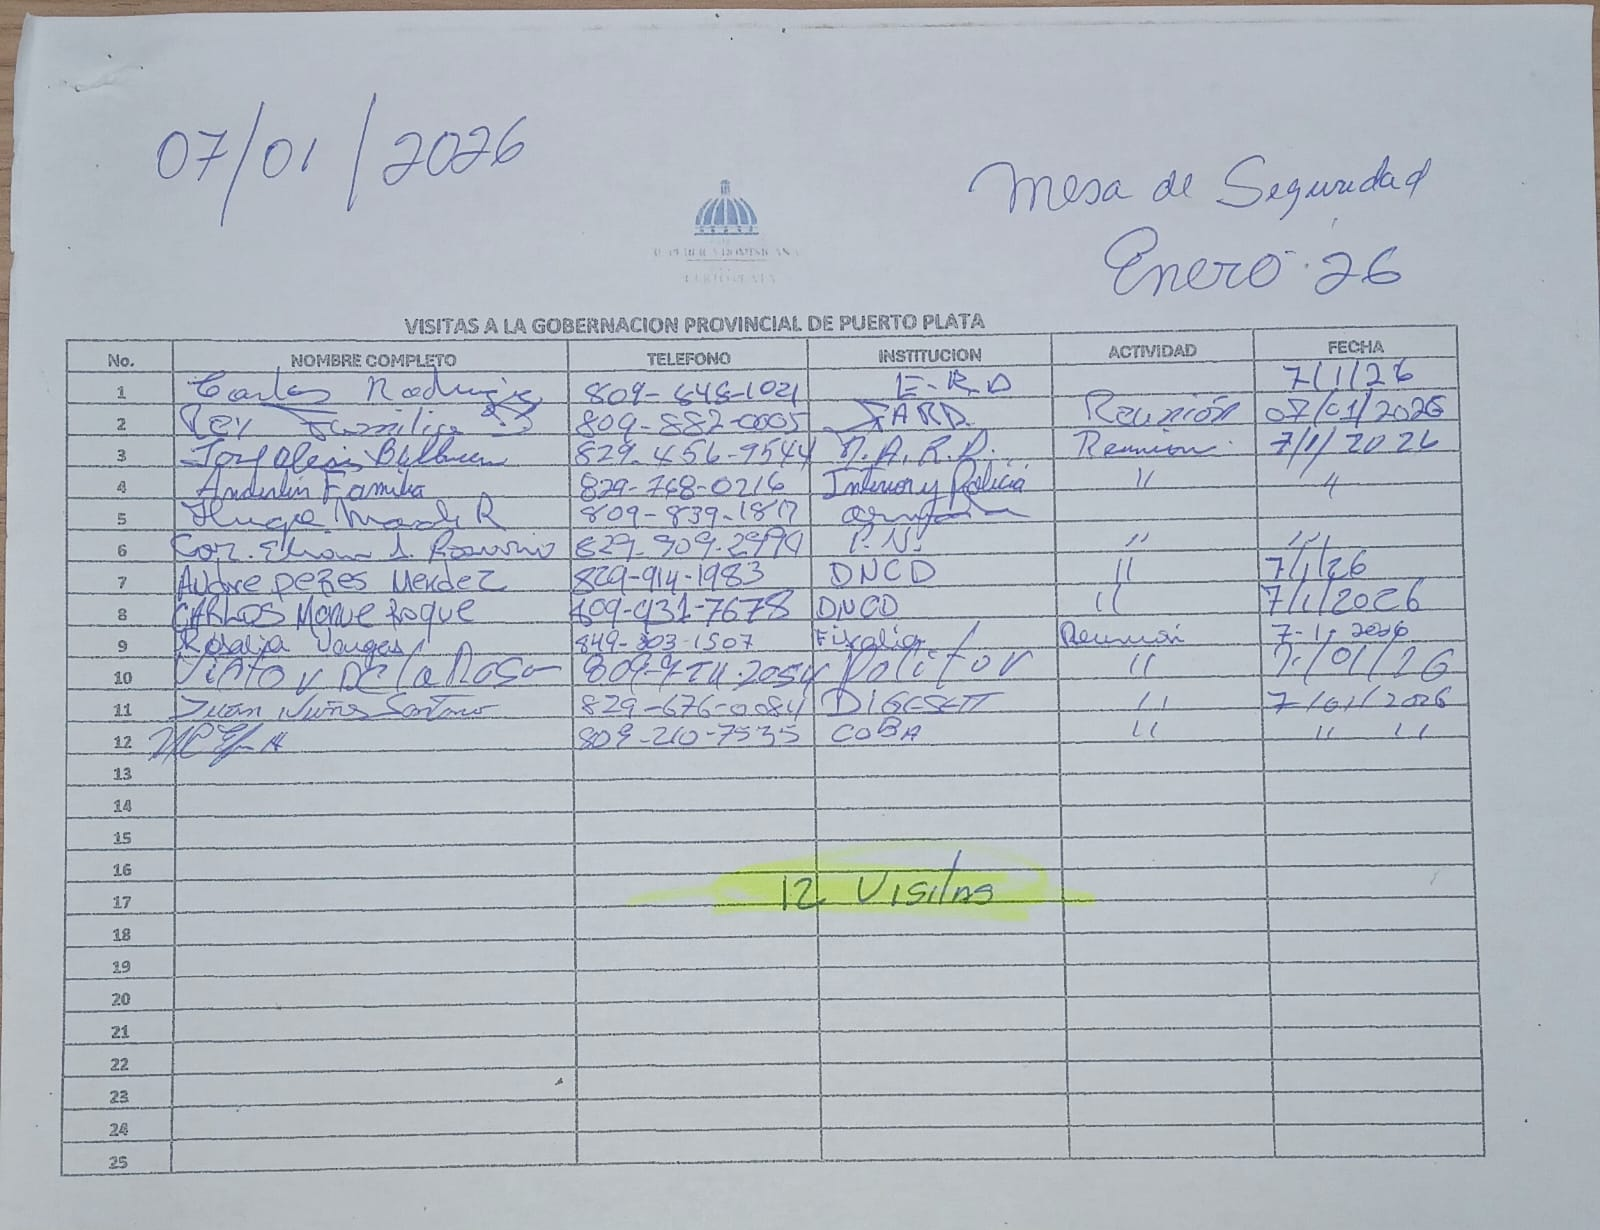 07/01/2026
Mesa de Seguridad
Enero 26
REPUBLICA DOMINICANA
PUERTO PLATA
VISITAS A LA GOBERNACION PROVINCIAL DE PUERTO PLATA
No. NOMBRE COMPLETO TELEFONO INSTITUCION ACTIVIDAD FECHA
1 Carlos Rodriguez 809-648-1021 E.R.D 7/1/26
2 809-882-0005 FARD Reunión 07/01/2026
3 829-456-9544 M.A.R.D. Reunion 7/1/2026
4 Anderlin Familia 829-768-0216 Interior y Policia " "
5 Hugo 809-839-1817
6 Cor. Rosario 829-909-2990 P.N. " " "
7 Andre peres Mendez 829-914-1983 DNCD " 7/1/26
8 CARLOS Manue Roque 809-931-7678 DNCD " 7/1/2026
9 Rosalia Vargas 849-303-1507 Fiscalia Reunion 7-1-2026
10 Victor De la Rosa Politur " 7/01/26
11 Juan Nuñez Santana 829-676-0084 DIGESETT " 7/01/2026
12 809-210-7535 COBA " " "
13
14
15
16
12 Visitas
17
18
19
20
21
22
23
24
25